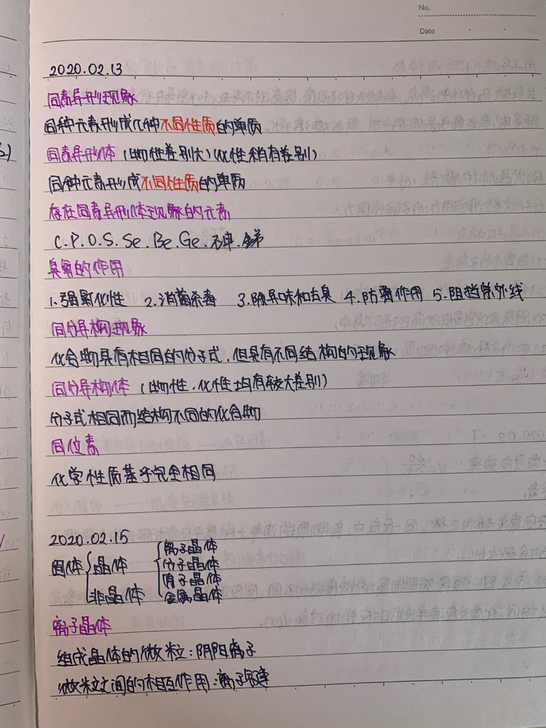 No.
Date
2020.02.13
同素异形现象
同种元素形成几种不同性质的单质
同素异形体（物性差别大）化性稍有差别）
同种元素形成不同性质的单质
存在同素异形体现象的元素
C.P.O.S.Se.Be.Ge.砷.锑
臭氧的作用
1.强氧化性 2.消菌杀毒 3.除异味和去臭 4.防霉作用 5.阻挡紫外线
同分异构现象
化合物具有相同的分子式，但具有不同结构的现象
同分异构体（物性.化性均有较大差别）
分子式相同而结构不同的化合物
同位素
化学性质基乎完全相同
2020.02.15
固体 晶体 离子晶体
分子晶体
原子晶体
非晶体 金属晶体
离子晶体
组成晶体的微粒：阴阳离子
微粒之间的相互作用：离子键